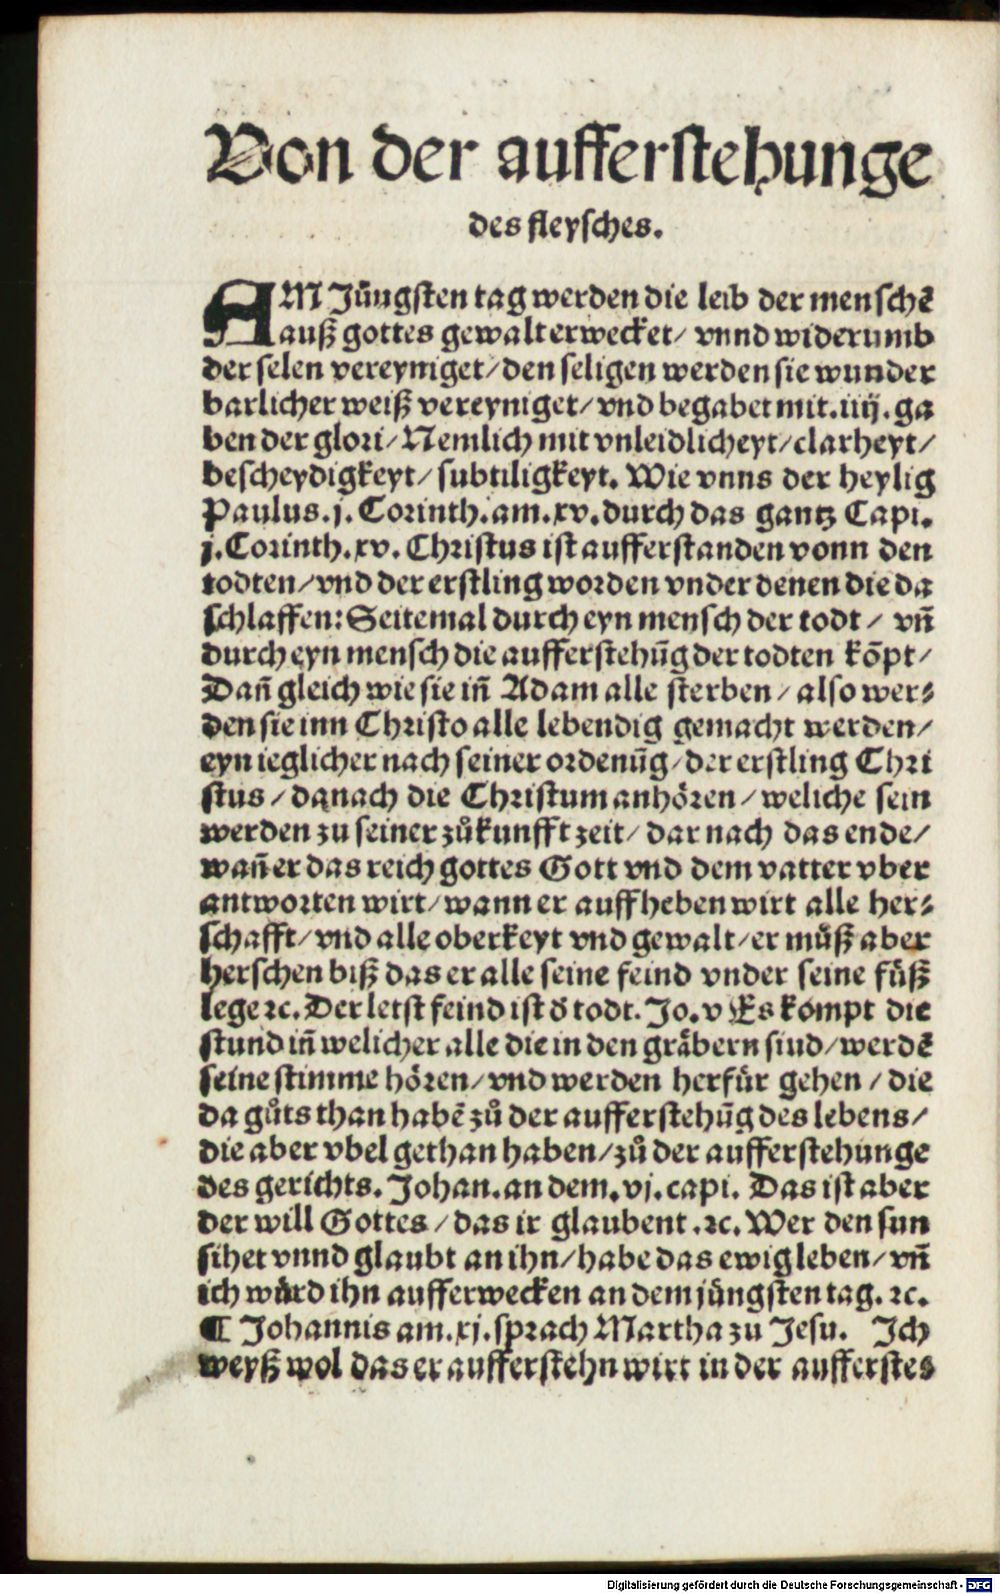 Von der aufferstehunge
des fleysches.
AM Jüngsten tag werden die leib der menschē
auß gottes gewalt erwecket/ vnnd widerumb
der selen vereyniget/ den seligen werden sie wunder
barlicher weiß vereyniget/ vnd begabet mit .iiij. ga
ben der glori/ Nemlich mit vnleidlicheyt/ clarheyt/
bescheydigkeyt/ subtiligkeyt. Wie vnns der heylig
Paulus .j. Corinth. am .xv. durch das gantz Capi.
j. Corinth. xv. Christus ist aufferstanden vonn den
todten/ vnd der erstling worden vnder denen die da
schlaffen: Seitemal durch eyn mensch der todt/ vñ
durch eyn mensch die aufferstehūg der todten kōpt/
Dañ gleich wie sie iñ Adam alle sterben/ also wer⸗
den sie inn Christo alle lebendig gemacht werden/
eyn ieglicher nach seiner ordenūg/ der erstling Chri
stus/ danach die Christum anhören/ weliche sein
werden zu seiner zůkunfft zeit/ dar nach das ende/
wañ er das reich gottes Gott vnd dem vatter vber
antworten wirt/ wann er auffheben wirt alle her⸗
schafft/ vnd alle oberkeyt vnd gewalt/ er můß aber
herschen biß das er alle seine feind vnder seine füß
lege ⁊c. Der letst feind ist d̄ todt. Jo. v Es kompt die
stund iñ welicher alle die in den gräbern sind/ werdē
seine stimme hören/ vnd werden herfür gehen/ die
da gůts than habē zů der aufferstehūg des lebens/
die aber vbel gethan haben/ zů der aufferstehunge
des gerichts. Johan. an dem. vj. capi. Das ist aber
der will Gottes/ das ir glaubent .⁊c. Wer den sun
sihet vnnd glaubt an ihn/ habe das ewig leben/ vñ
ich würd ihn aufferwecken an dem jüngsten tag. ⁊c.
¶ Johannis am. xj. sprach Martha zu Jesu. Ich
weyß wol das er aufferstehn wirt in der aufferste⸗
Digitalisierung gefördert durch die Deutsche Forschungsgemeinschaft - DFG